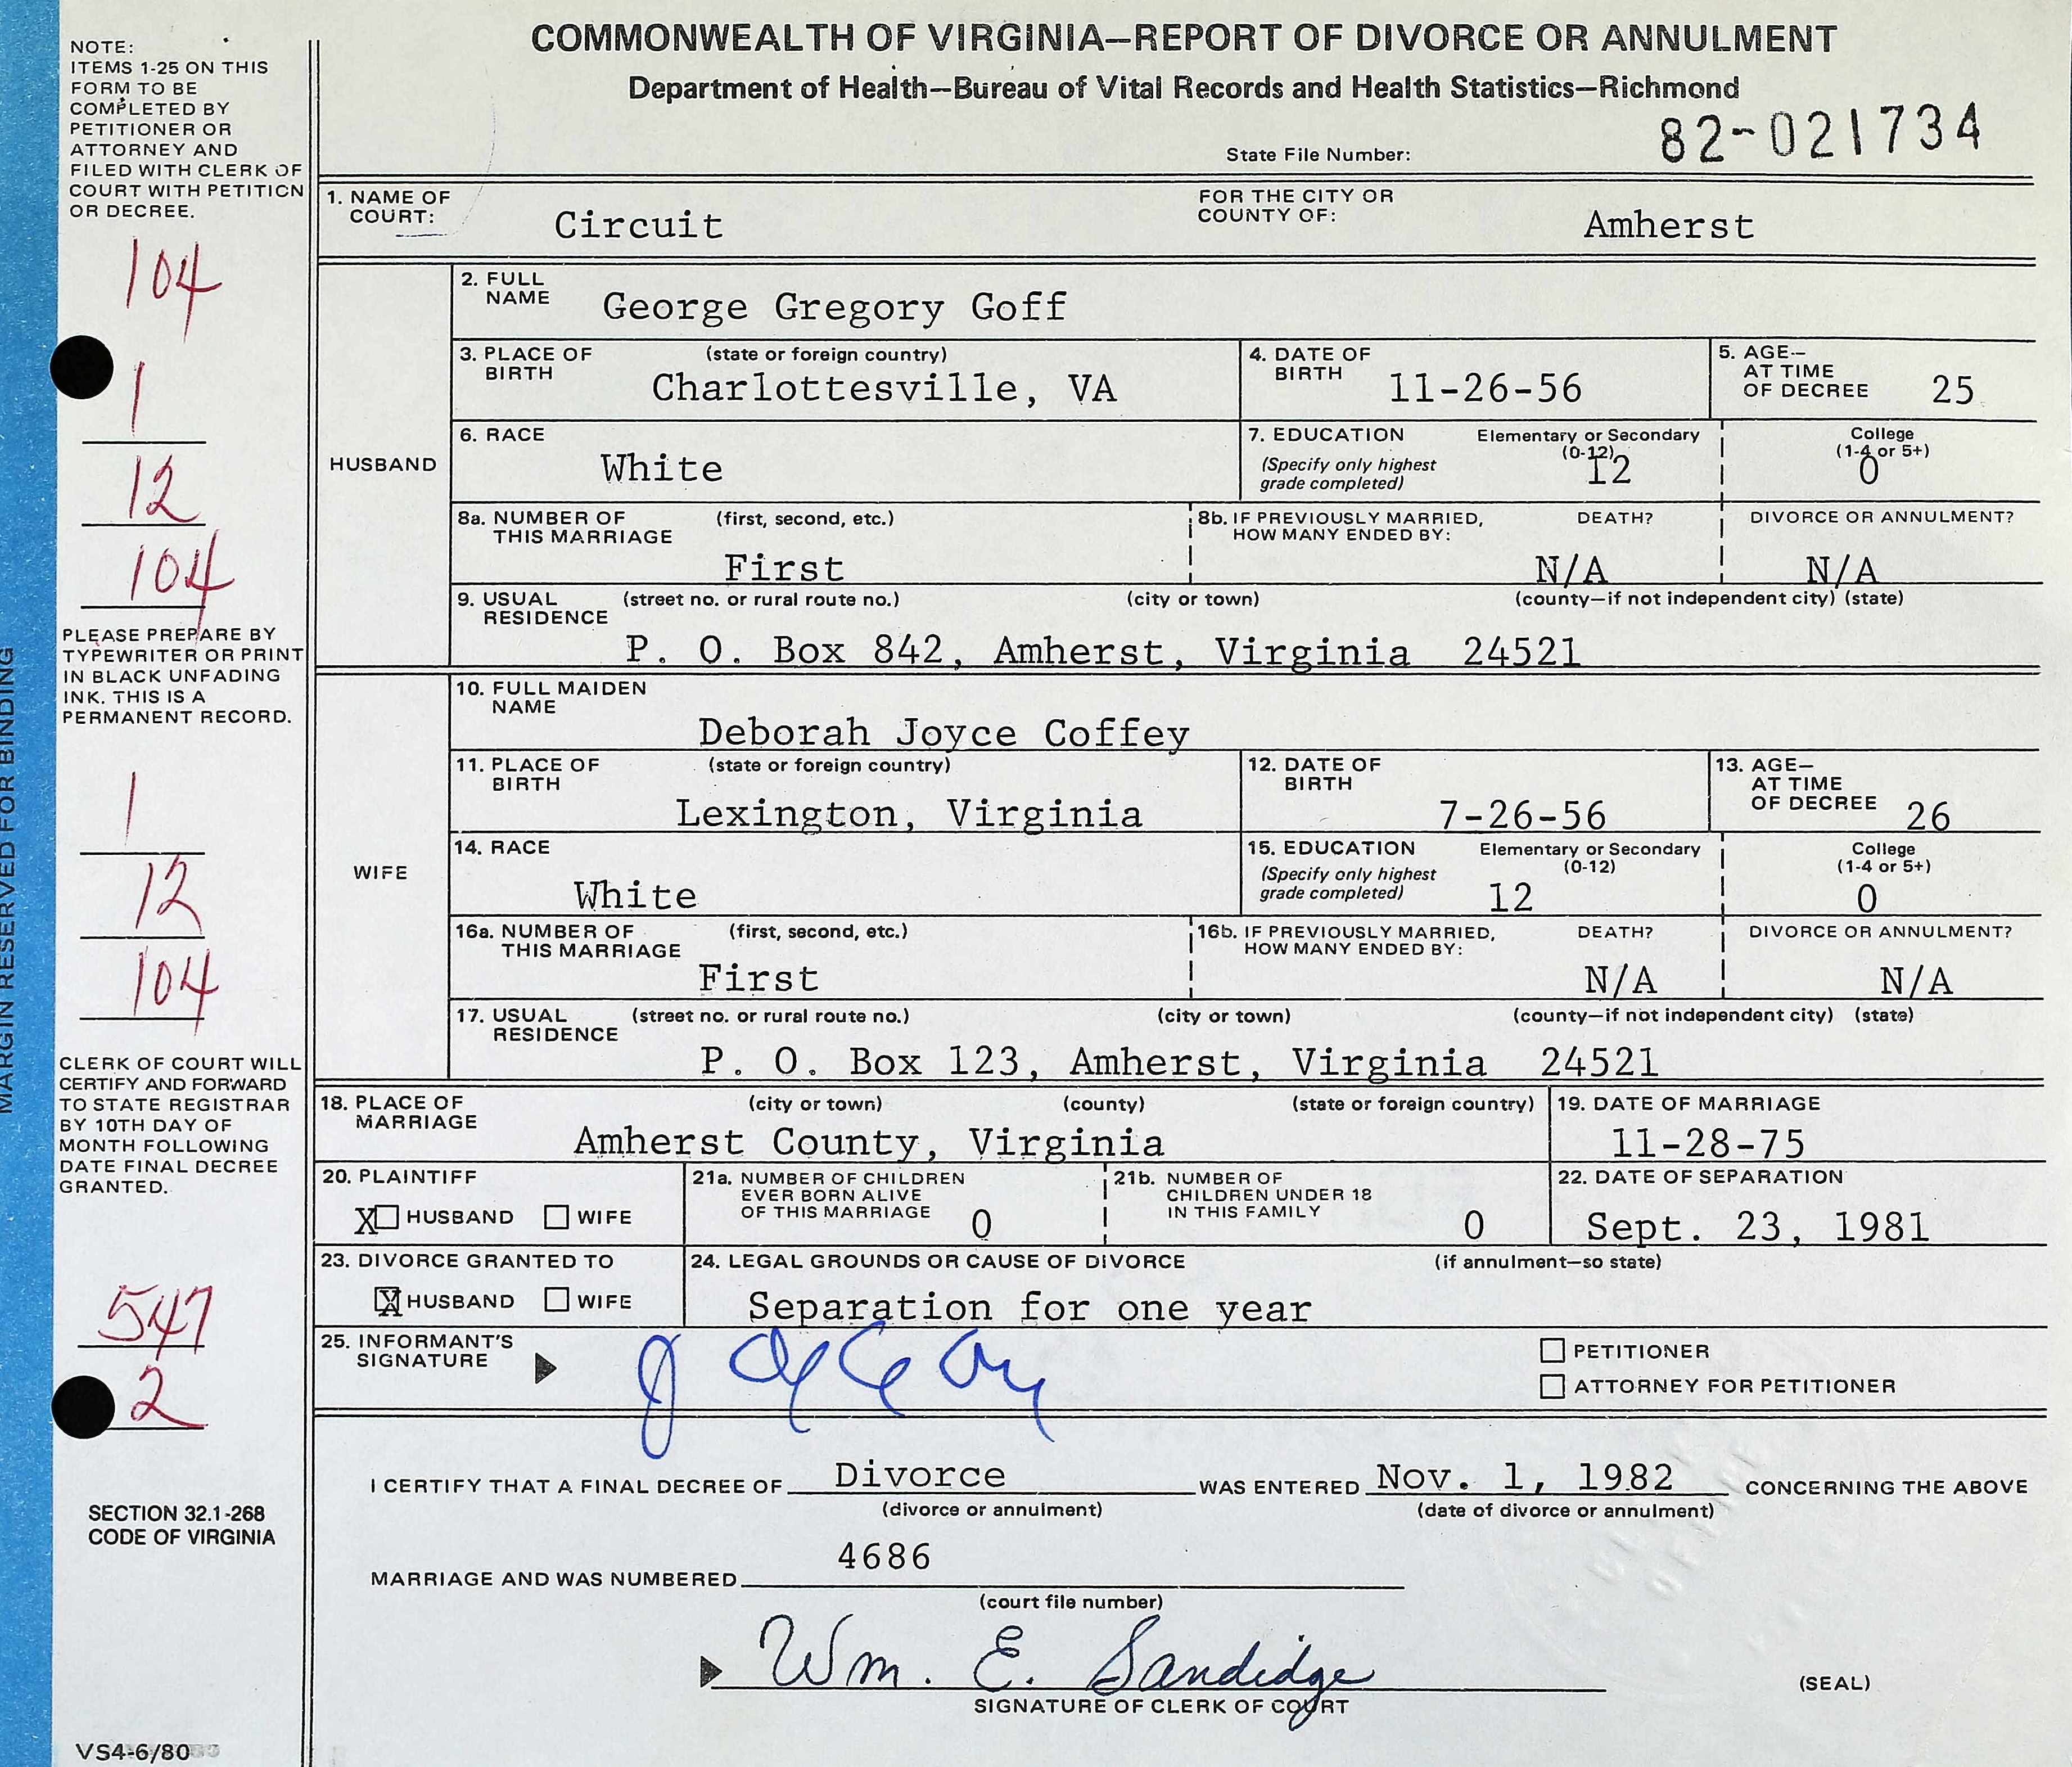 COMMONWEALTH OF VIRGINIA—REPORT OF DIVORCE OR ANNULMENT
Department of Health—Bureau of Vital Records and Health Statistics—Richmond
State File Number: 82-021734
NOTE:
ITEMS 1-25 ON THIS
FORM TO BE
COMPLETED BY
PETITIONER OR
ATTORNEY AND
FILED WITH CLERK OF
COURT WITH PETITION
OR DECREE.
104
1
12
104
PLEASE PREPARE BY
TYPEWRITER OR PRINT
IN BLACK UNFADING
INK. THIS IS A
PERMANENT RECORD.
1
12
104
CLERK OF COURT WILL
CERTIFY AND FORWARD
TO STATE REGISTRAR
BY 10TH DAY OF
MONTH FOLLOWING
DATE FINAL DECREE
GRANTED.
547
2
SECTION 32.1-268
CODE OF VIRGINIA
VS4-6/80
MARGIN RESERVED FOR BINDING
1. NAME OF COURT: Circuit FOR THE CITY OR COUNTY OF: Amherst
HUSBAND
2. FULL NAME George Gregory Goff
3. PLACE OF BIRTH (state or foreign country) Charlottesville, VA
4. DATE OF BIRTH 11-26-56
5. AGE— AT TIME OF DECREE 25
6. RACE White
7. EDUCATION (Specify only highest grade completed) Elementary or Secondary (0-12) 12 College (1-4 or 5+) 0
8a. NUMBER OF THIS MARRIAGE (first, second, etc.) First
8b. IF PREVIOUSLY MARRIED, HOW MANY ENDED BY: DEATH? N/A DIVORCE OR ANNULMENT? N/A
9. USUAL RESIDENCE (street no. or rural route no.) (city or town) (county—if not independent city) (state)
P. O. Box 842, Amherst, Virginia 24521
WIFE
10. FULL MAIDEN NAME Deborah Joyce Coffey
11. PLACE OF BIRTH (state or foreign country) Lexington, Virginia
12. DATE OF BIRTH 7-26-56
13. AGE— AT TIME OF DECREE 26
14. RACE White
15. EDUCATION (Specify only highest grade completed) Elementary or Secondary (0-12) 12 College (1-4 or 5+) 0
16a. NUMBER OF THIS MARRIAGE (first, second, etc.) First
16b. IF PREVIOUSLY MARRIED, HOW MANY ENDED BY: DEATH? N/A DIVORCE OR ANNULMENT? N/A
17. USUAL RESIDENCE (street no. or rural route no.) (city or town) (county—if not independent city) (state)
P. O. Box 123, Amherst, Virginia 24521
18. PLACE OF MARRIAGE (city or town) (county) (state or foreign country) Amherst County, Virginia
19. DATE OF MARRIAGE 11-28-75
20. PLAINTIFF X HUSBAND WIFE
21a. NUMBER OF CHILDREN EVER BORN ALIVE OF THIS MARRIAGE 0
21b. NUMBER OF CHILDREN UNDER 18 IN THIS FAMILY 0
22. DATE OF SEPARATION Sept. 23, 1981
23. DIVORCE GRANTED TO X HUSBAND WIFE
24. LEGAL GROUNDS OR CAUSE OF DIVORCE (if annulment—so state) Separation for one year
25. INFORMANT'S SIGNATURE
PETITIONER
ATTORNEY FOR PETITIONER
I CERTIFY THAT A FINAL DECREE OF Divorce WAS ENTERED Nov. 1, 1982 CONCERNING THE ABOVE
(divorce or annulment) (date of divorce or annulment)
MARRIAGE AND WAS NUMBERED 4686
(court file number)
Wm. E. Sandidge
SIGNATURE OF CLERK OF COURT
(SEAL)